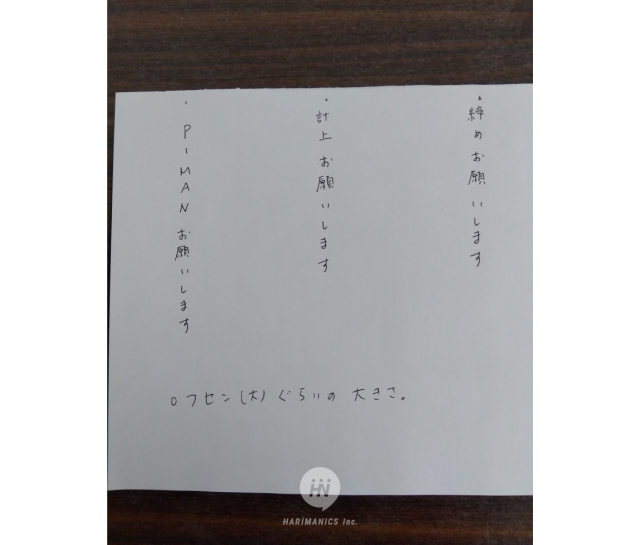 ・締めお願いします
・計上お願いします
・PIMANお願いします
○フセン(大)ぐらいの大きさ。
HN
HARIMANICS Inc.